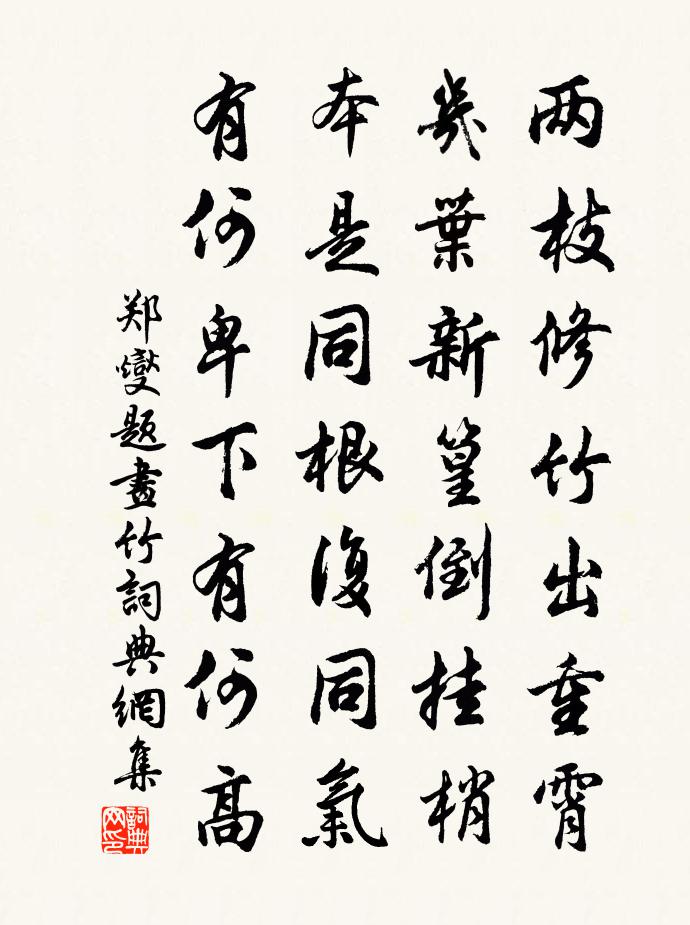 两枝修竹出重霄
幾葉新篁倒挂梢
本是同根復同氣
有何卑下有何高
郑燮题畫竹詞典網集
詞典网印